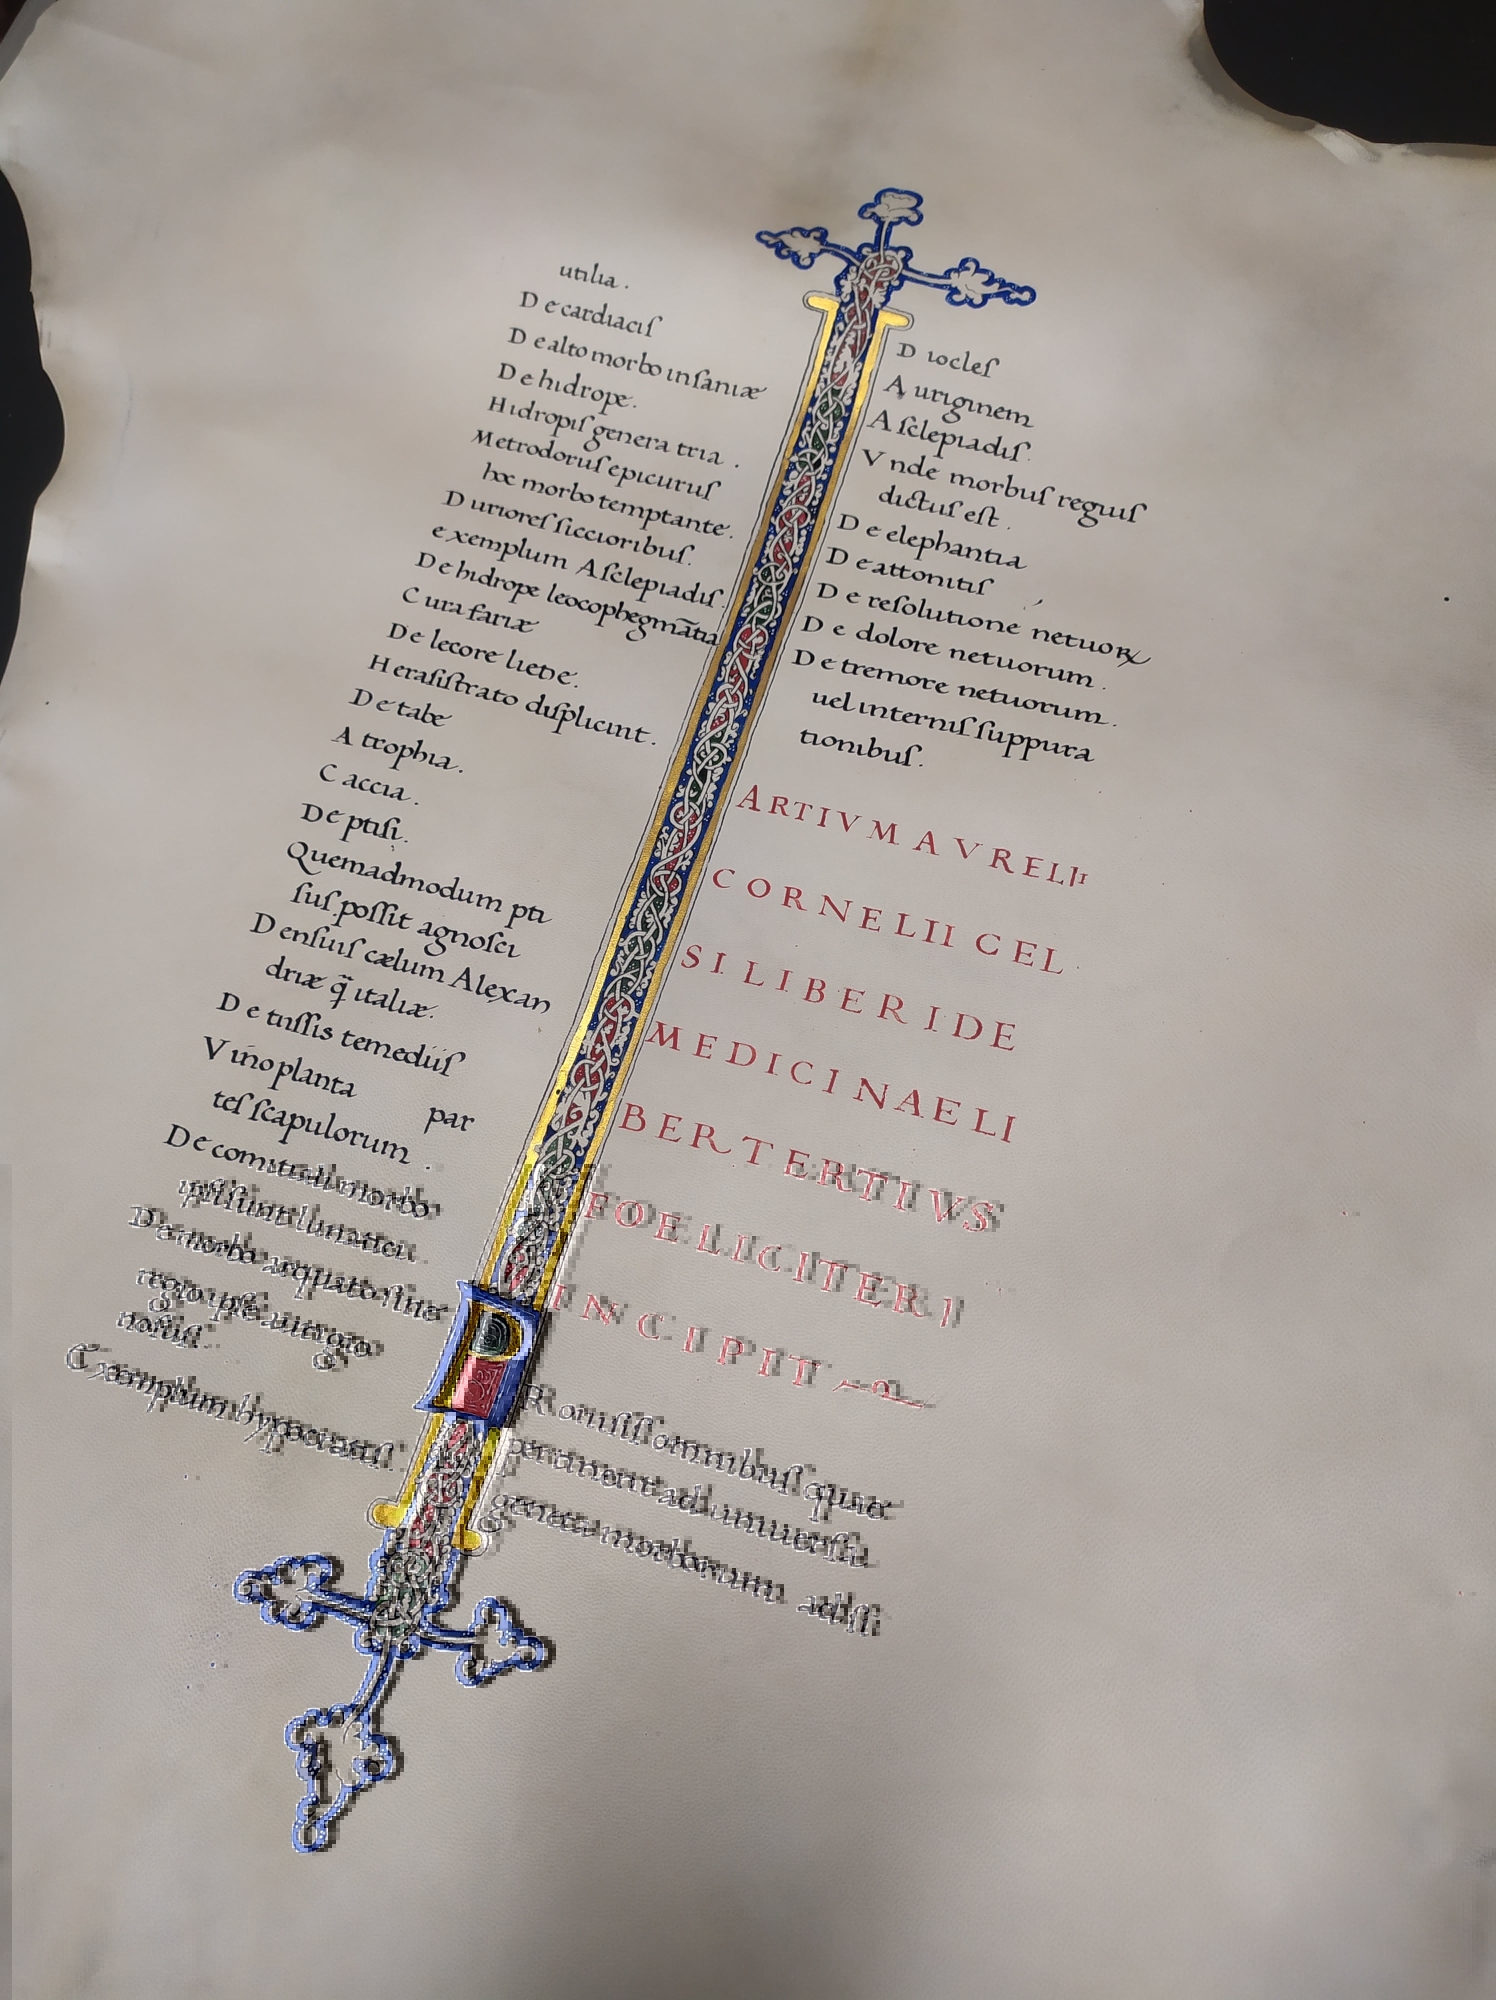 utilia.
De cardiacis
De alto morbo insaniæ
De hidrope.
Hidropis genera tria.
Metrodorus epicurus
hoc morbo temptante.
Duriores siccioribus.
exemplum Asclepiadis.
De hidrope leocophegmātia
Cura fariæ
De Iecore liene.
Herasistrato displicint.
De tabe
Atrophia.
Caccia.
De ptisi.
Quemadmodum pti
sus possit agnosci
Densius cælum Alexan
driæ q̄ italiæ.
De tussis temediis
Vino planta par
tes scapulorum.
De comitiali morbo
De morbo arquato sine
regio
nostis.
Exemplum hyppocratis.
Diocles
Auriginem
Asclepiadis.
Vnde morbus regius
dictus est.
De elephantia
De attonitis
De resolutione netuoꝝ
De dolore netuorum.
De tremore netuorum.
uel internis suppura
tionibus.
ARTIVM AVRELII
CORNELII CEL
SI LIBER I DE
MEDICINAE LI
BER TERTIVS
FOELICITER
INCIPIT
P Rouisis omnibus quae
pertinent ad uniuersa
genera morborum ad si